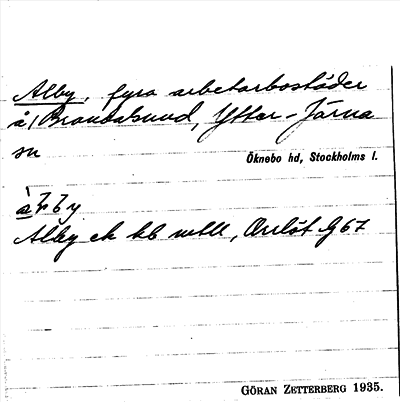 Alby, fyra arbetarbostäder
å Brandalsund, Ytter-Järna
sn Öknebo hd, Stockholms l.
Alby ek kb mtll, Överlöt G 67
GÖRAN ZETTERBERG 1935.